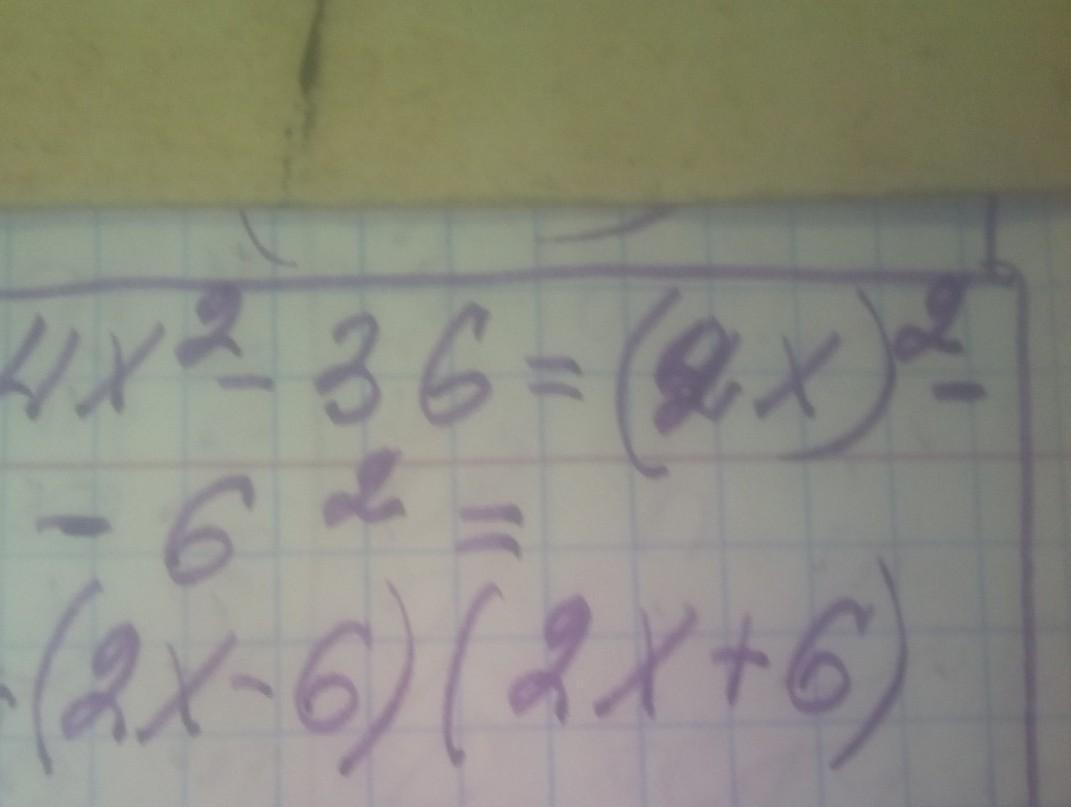 4x² - 36 = (2x)² -
- 6² =
(2x - 6)(2x + 6)